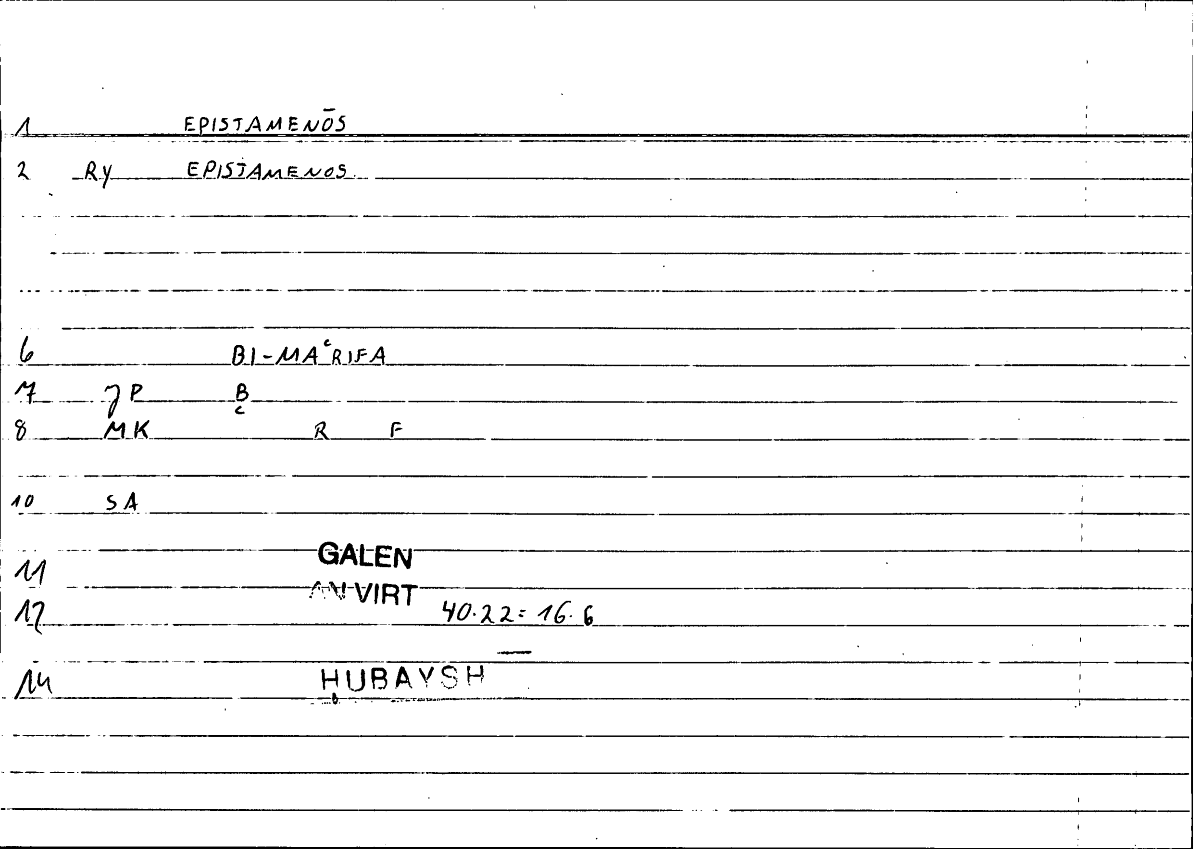 1 EPISTAMENŌS
2 RY EPISTAMENOS
6 BI-MAʿRIFA
7 JP B
8 MK R F
10 SA
11 GALEN
AN VIRT
12 40.22 = 16.6
14 ḤUBAYSH